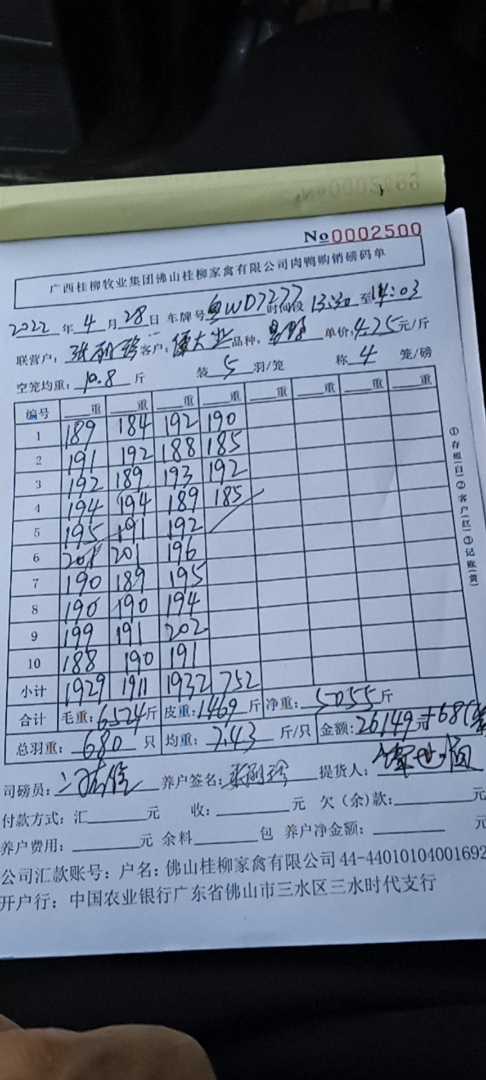 No 0002500
广西桂柳牧业集团佛山桂柳家禽有限公司肉鸭购销磅码单
2022 年 4 月 28 日 车牌号 粤WD7277 时间段 13:30 至 14:03
联营户: 客户: 品种: 单价: 4.25 元/斤
空笼均重: 10.8 斤 装 5 羽/笼 称 4 笼/磅
编号 重 重 重 重 重 重 重 重
1 189 184 192 190
2 191 192 188 185
3 192 189 193 192
4 194 194 189 185
5 195 191 192
6 201 201 196
7 190 189 195
8 190 190 194
9 199 191 202
10 188 190 191
小计 1929 1911 1932 752
合计 毛重: 6524 斤 皮重: 1469 斤 净重: 5055 斤
总羽重: 680 只 均重: 7.43 斤/只 金额: 26149 元 +68
司磅员: 养户签名: 提货人:
付款方式: 汇 元 收: 元 欠(余)款: 元
养户费用: 元 余料 包 养户净金额: 元
公司汇款账号: 户名: 佛山桂柳家禽有限公司 44-44010104001692
开户行: 中国农业银行广东省佛山市三水区三水时代支行
①存根(白)②客户(红)③记账(黄)